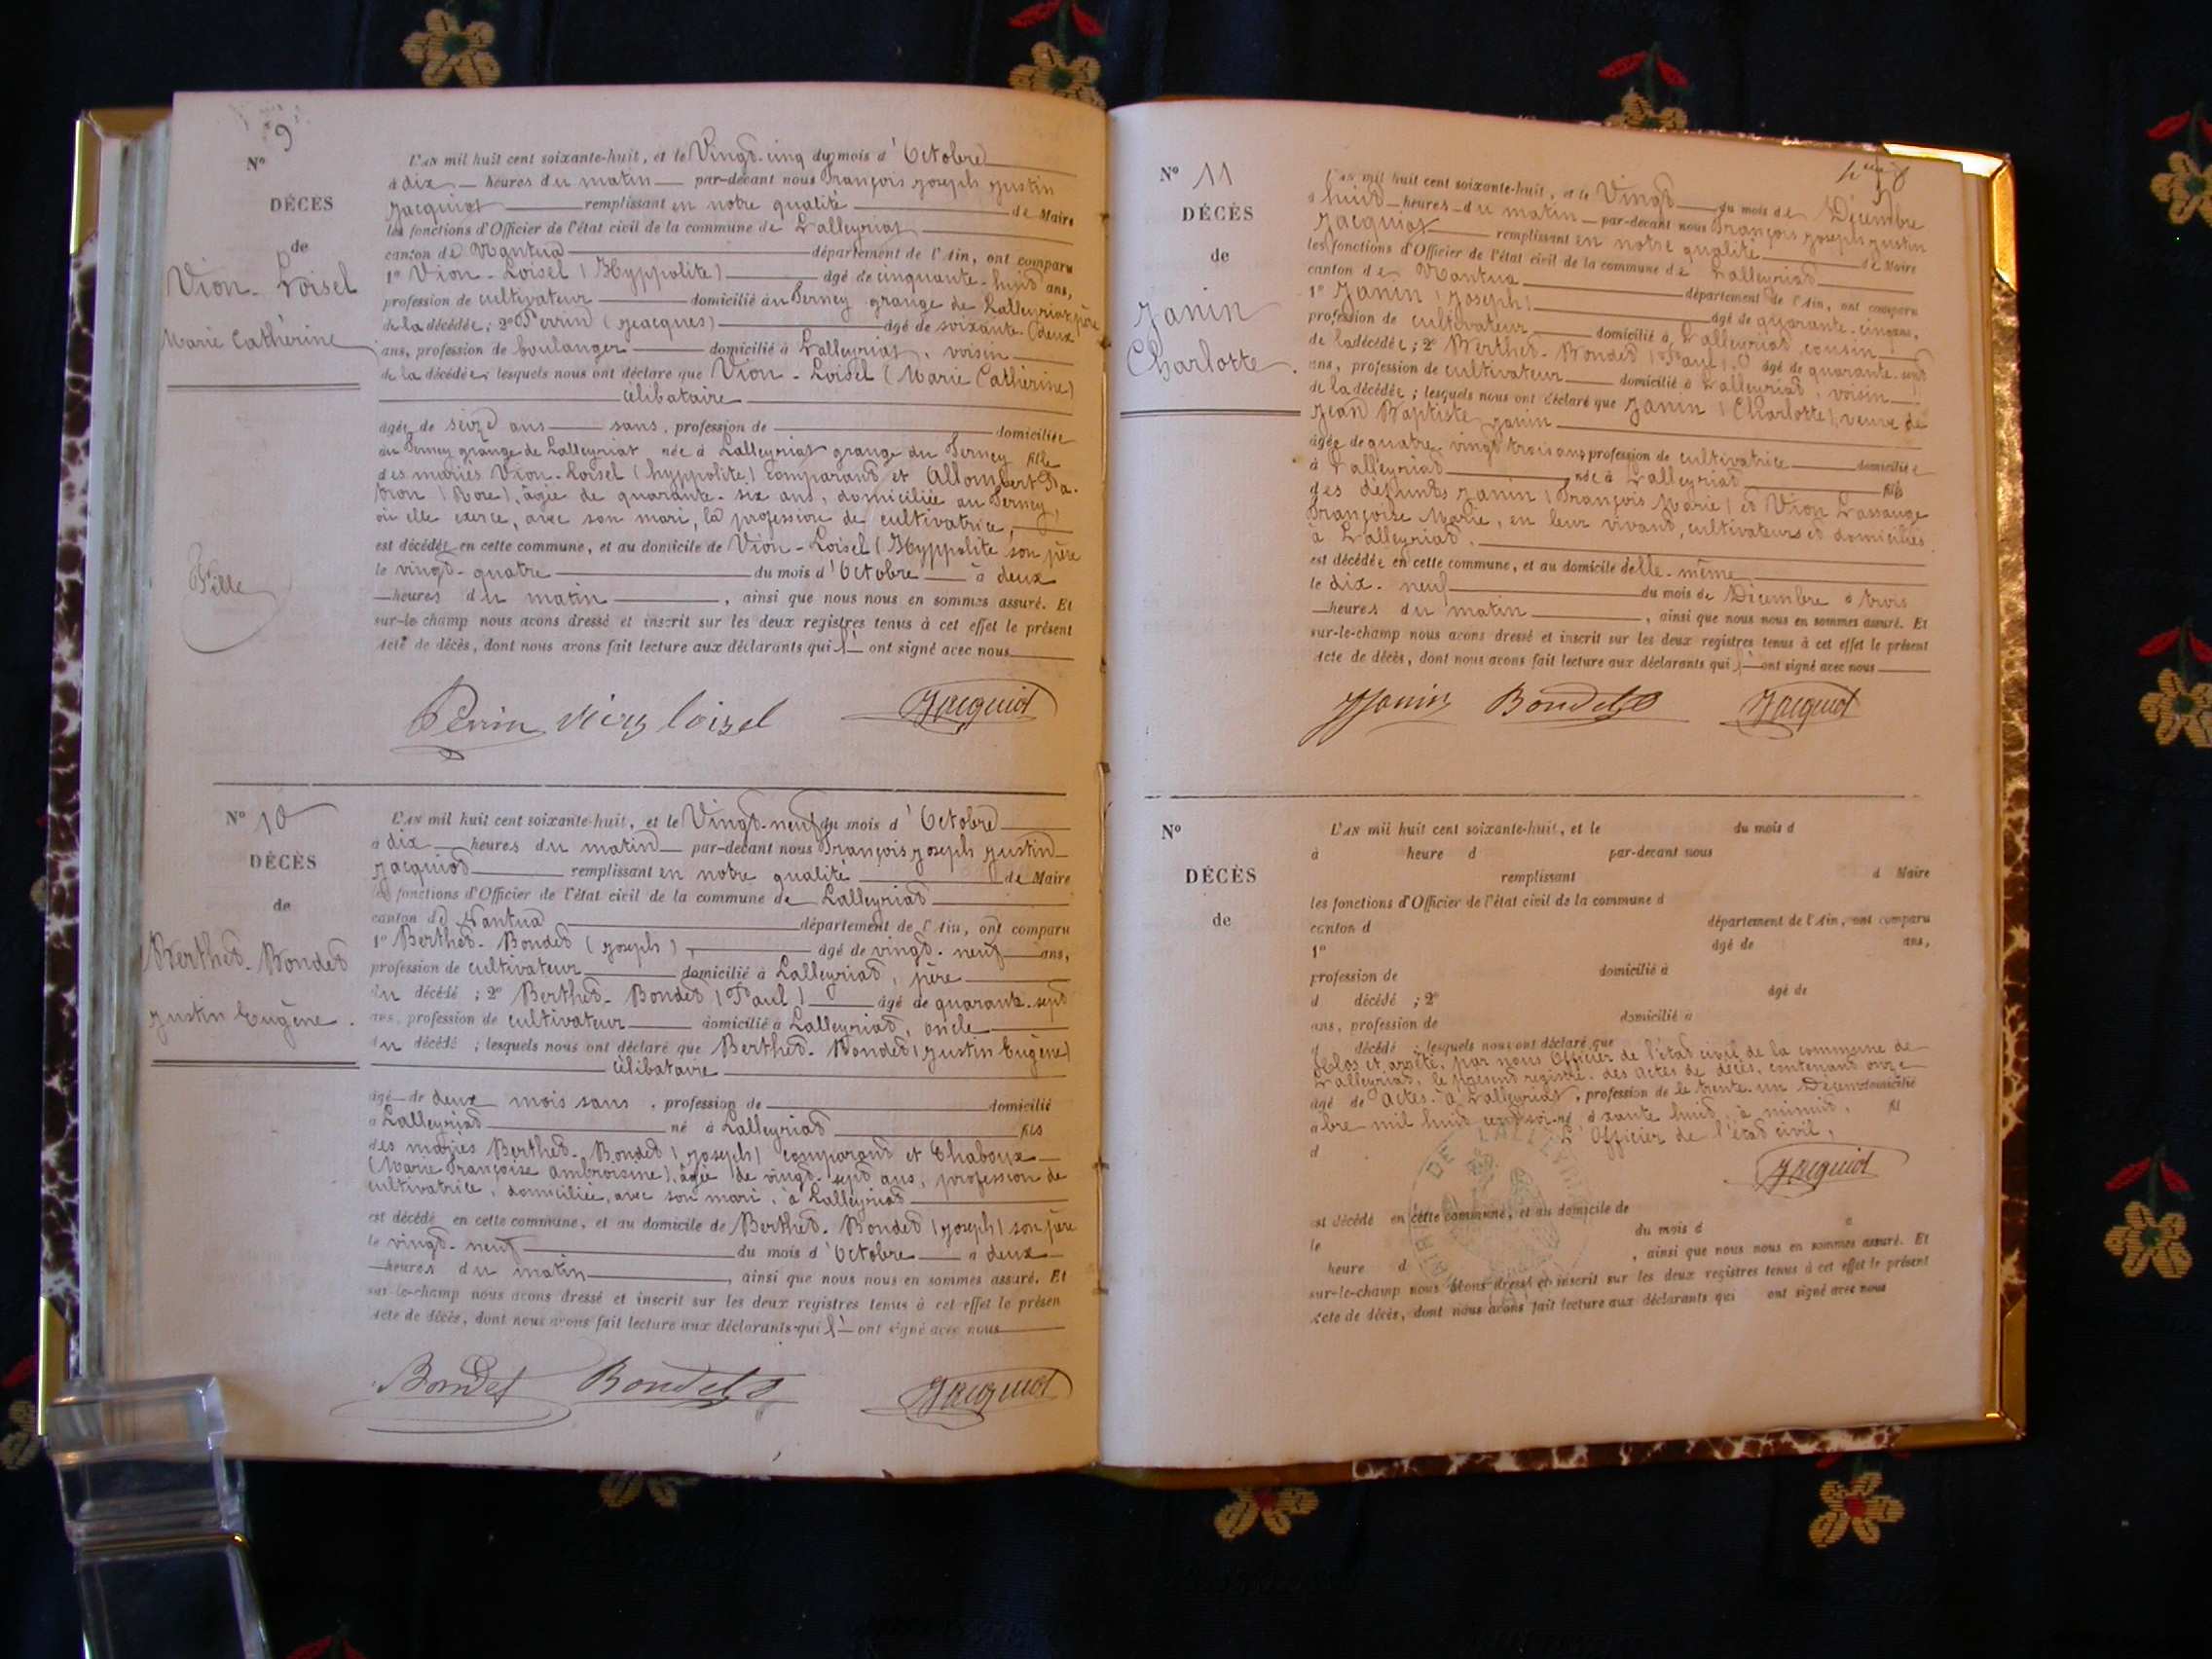 9
N°
DÉCÈS
de
Vion-Loisel
Marie Cathérine
Fille
L'AN mil huit cent soixante-huit, et le Vingt-cinq du mois d'Octobre
à dix heures du matin par-devant nous François Joseph Justin
Jacquiot remplissant en notre qualité de Maire
les fonctions d'Officier de l'état civil de la commune de Lalleyriat
canton de Nantua département de l'Ain, ont comparu
1° Vion-Loisel (Hyppolite) âgé de cinquante-huit ans,
profession de cultivateur domicilié au Berney grange de Lalleyriat, père
de la décédée; 2° Perrin (Jacques) âgé de soixante-deux
ans, profession de boulanger domicilié à Lalleyriat, voisin
de la décédée; lesquels nous ont déclaré que Vion-Loisel (Marie Cathérine)
célibataire
âgée de seize ans sans, profession de domiciliée
au Berney grange de Lalleyriat née à Lalleyriat grange du Berney fille
des mariés Vion-Loisel (hyppolite) comparant et Allombert Pa-
tron (Rose), âgée de quarante-six ans, domiciliée au Berney,
où elle exerce, avec son mari, la profession de cultivatrice,
est décédée en cette commune, et au domicile de Vion-Loisel (Hyppolite son père
le vingt-quatre du mois d'Octobre à deux
heures du matin, ainsi que nous nous en sommes assuré. Et
sur-le-champ nous avons dressé et inscrit sur les deux registres tenus à cet effet le présent
Acte de décès, dont nous avons fait lecture aux déclarants qui l'ont signé avec nous
Perrin Vion loisel Jacquiot
N° 10
DÉCÈS
de
Berthet-Bondet
Justin Eugène.
L'AN mil huit cent soixante-huit, et le Vingt-neuf du mois d'Octobre
à dix heures du matin par-devant nous François Joseph Justin
Jacquiot remplissant en notre qualité de Maire
les fonctions d'Officier de l'état civil de la commune de Lalleyriat
canton de Nantua département de l'Ain, ont comparu
1° Berthet-Bondet (Joseph), âgé de vingt-neuf ans,
profession de cultivateur domicilié à Lalleyriat, père
du décédé; 2° Berthet-Bondet (Paul) âgé de quarante-sept
ans, profession de cultivateur domicilié à Lalleyriat, oncle
du décédé; lesquels nous ont déclaré que Berthet-Bondet (Justin Eugène)
célibataire
âgé de deux mois sans, profession de domicilié
à Lalleyriat né à Lalleyriat fils
des mariés Berthet-Bondet (Joseph) comparant et Chaboux
(Marie Françoise Ambroisine), âgée de vingt-sept ans, profession de
cultivatrice, domiciliée, avec son mari, à Lalleyriat
est décédé en cette commune, et au domicile de Berthet-Bondet (Joseph) son père
le vingt-neuf du mois d'Octobre à deux
heures du matin, ainsi que nous nous en sommes assuré. Et
sur-le-champ nous avons dressé et inscrit sur les deux registres tenus à cet effet le présen
Acte de décès, dont nous avons fait lecture aux déclarants qui l'ont signé avec nous
Bondet Bondet Jacquiot
N° 11
DÉCÈS
de
Janin
Charlotte.
L'AN mil huit cent soixante-huit, et le Vingt du mois de Décembre
à huit heures du matin par-devant nous François Joseph Justin
Jacquiot remplissant en notre qualité de Maire
les fonctions d'Officier de l'état civil de la commune de Lalleyriat
canton de Nantua département de l'Ain, ont comparu
1° Janin (Joseph) âgé de quarante-cinq ans,
profession de cultivateur domicilié à Lalleyriat, cousin
de la décédée; 2° Berthet-Bondet (Paul), âgé de quarante-sept
ans, profession de cultivateur domicilié à Lalleyriat, voisin
de la décédée; lesquels nous ont déclaré que Janin (Charlotte), veuve de
Jean Baptiste Janin
âgée de quatre-vingt trois ans profession de cultivatrice domiciliée
à Lalleyriat, née à Lalleyriat fils
des défunts Janin (François Marie) et Vion Lassauge
Françoise Marie, en leur vivant, cultivateurs et domiciliés
à Lalleyriat.
est décédée en cette commune, et au domicile de lle-même
le dix-neuf du mois de Décembre à trois
heures du matin, ainsi que nous nous en sommes assuré. Et
sur-le-champ nous avons dressé et inscrit sur les deux registres tenus à cet effet le présent
Acte de décès, dont nous avons fait lecture aux déclarants qui l'ont signé avec nous
Janin Bondet Jacquiot
N°
DÉCÈS
de
L'AN mil huit cent soixante-huit, et le du mois d
à heure d par-devant nous
remplissant d Maire
les fonctions d'Officier de l'état civil de la commune d
canton d département de l'Ain, ont comparu
1° âgé de ans,
profession de domicilié à
d décédé ; 2° âgé de
ans, profession de domicilié à
d décédé ; lesquels nous ont déclaré que
Clos et arrêté, par nous Officier de l'état civil de la commune de
Lalleyriat, le présent registre des actes de décès, contenant onze
âgé de actes. à Lalleyriat, profession de le trente-un Décem domicilié
à bre mil huit cent soi- né à xante huit, à minuit, fil
d L'Officier de l'état civil,
Jacquiot
MAIRIE DE LALLEYRIAT
est décédé en cette commune, et au domicile de
le du mois d à
heure d , ainsi que nous nous en sommes assuré. Et
sur-le-champ nous avons dressé et inscrit sur les deux registres tenus à cet effet le présent
Acte de décès, dont nous avons fait lecture aux déclarants qui ont signé avec nous